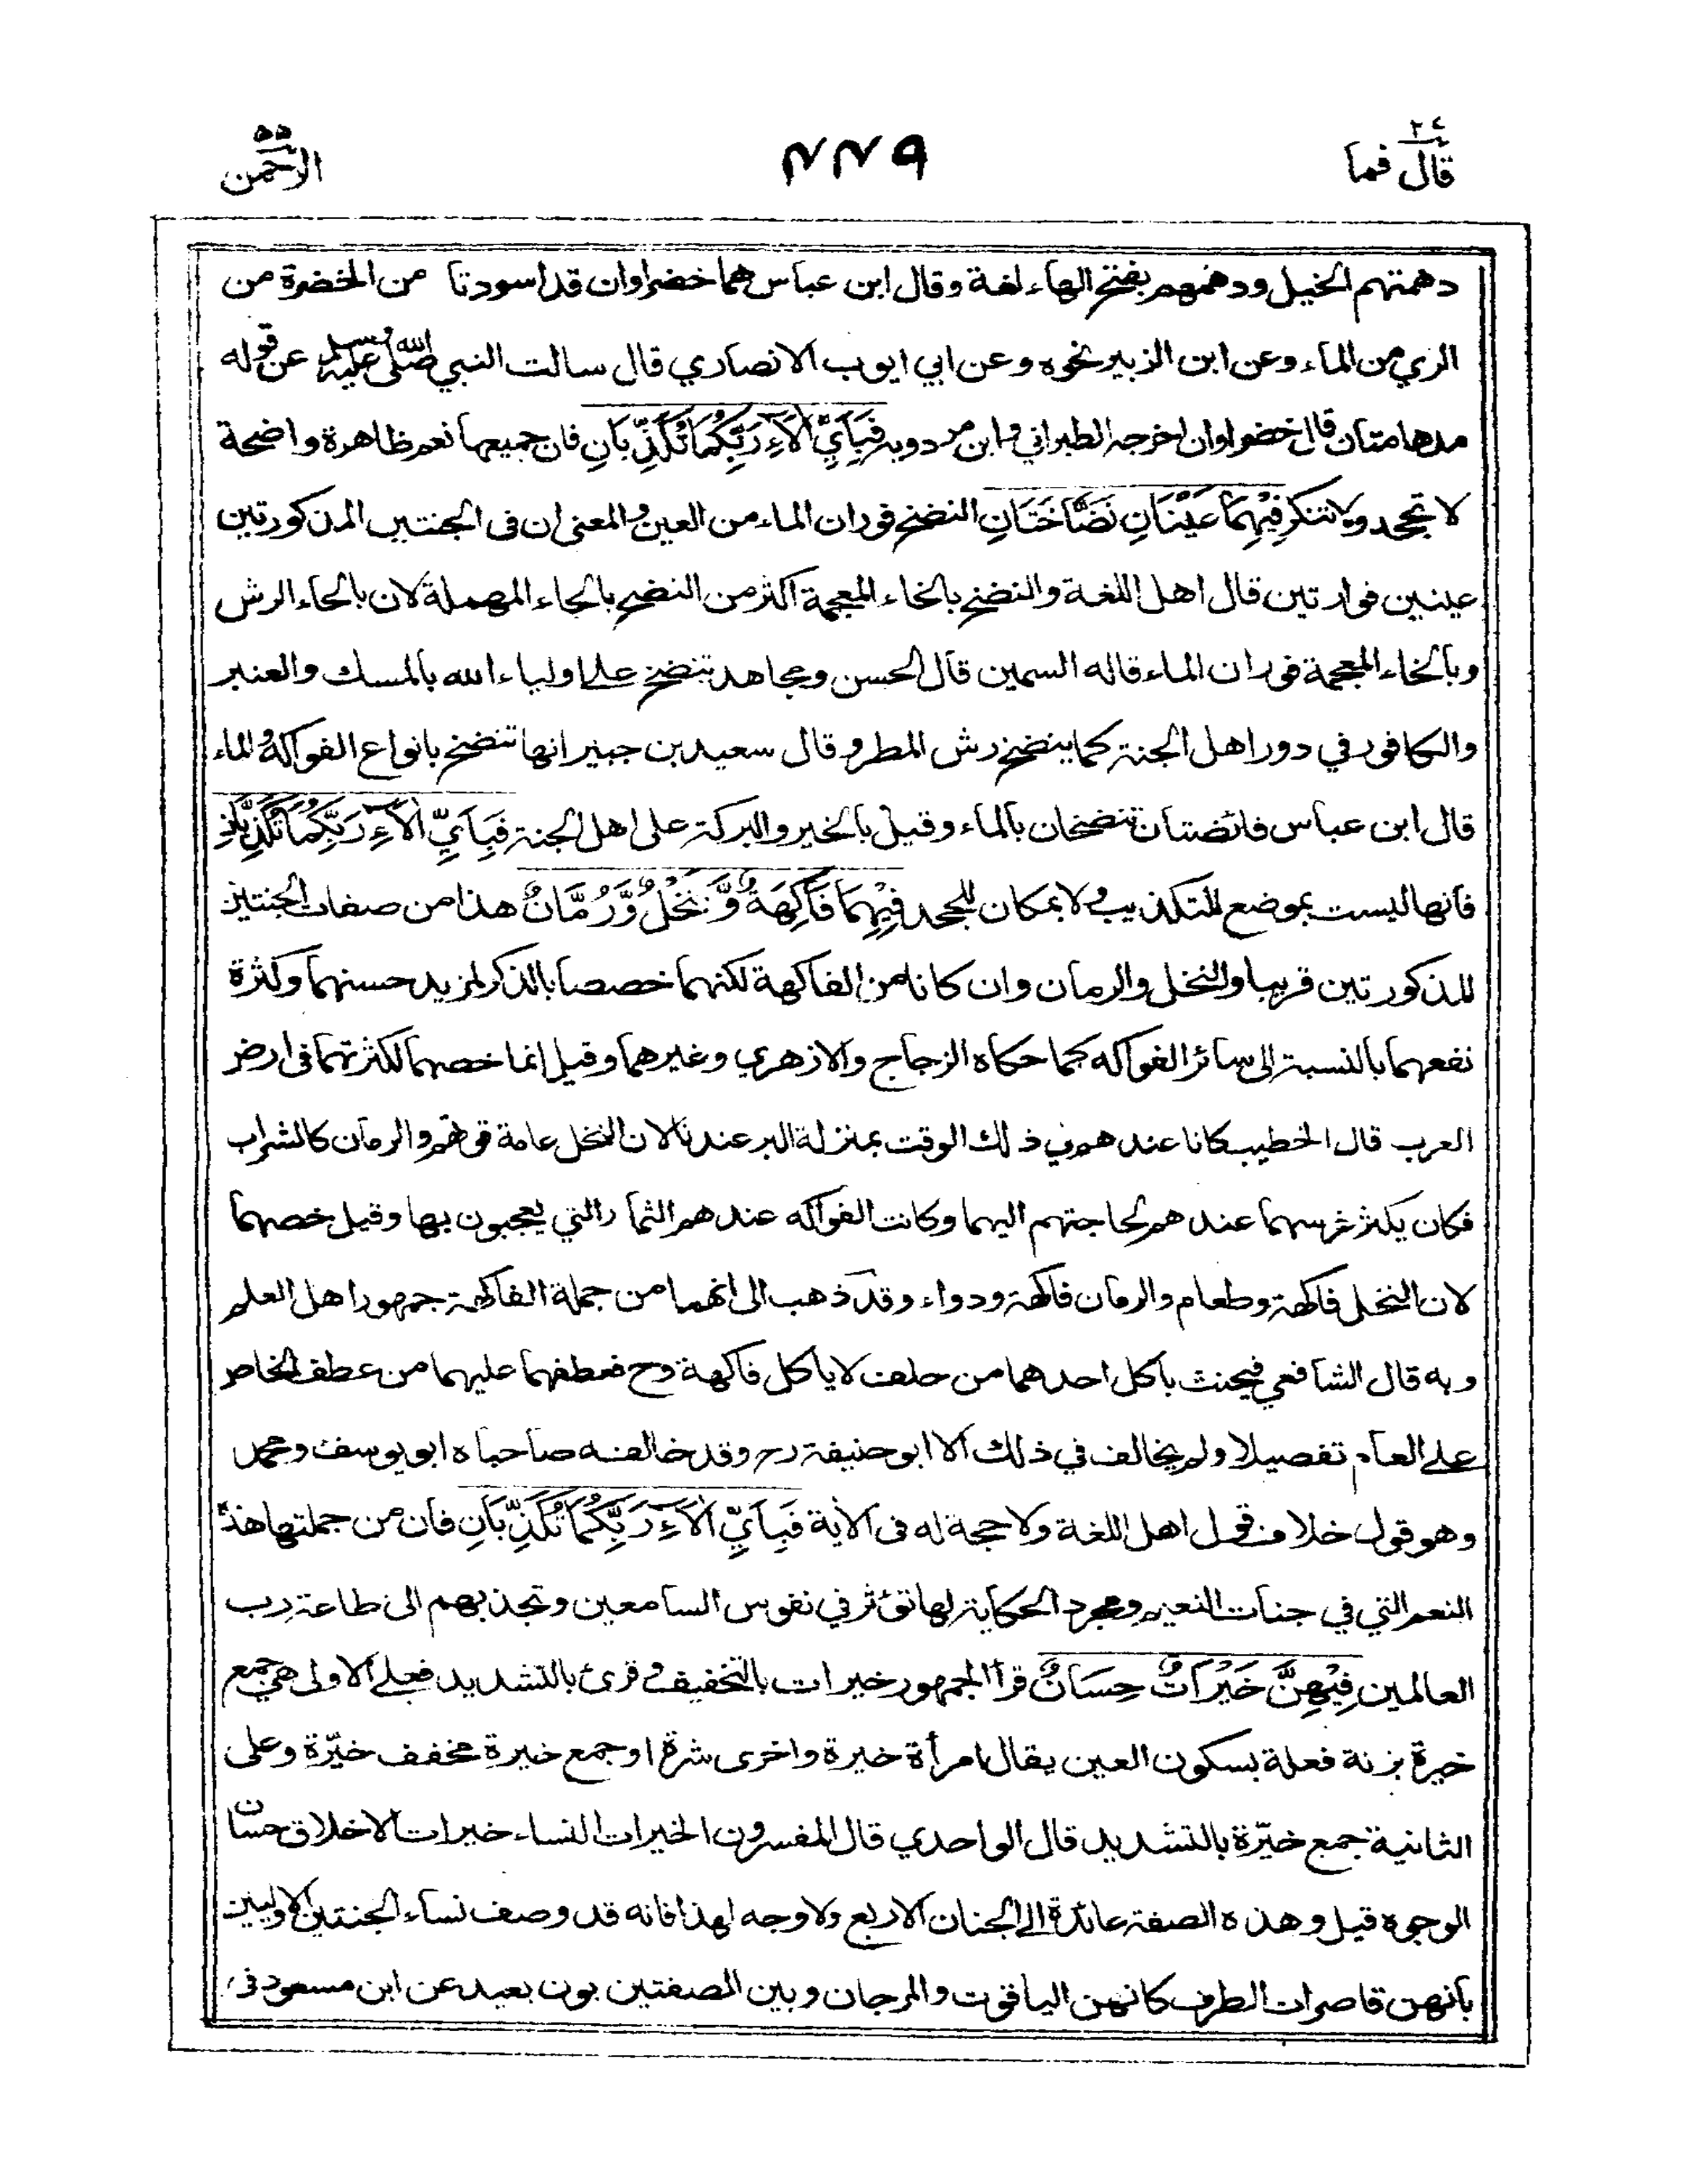 قال فما ٢٤
٢٢٩
الرحمن ٥٥
دهمتهم الخيل ودهمهم بفتح الهاء لغة وقال ابن عباس هما خضراوان قد اسودتا من الخضرة من
الري من الماء وعن ابن الزبير نحوه وعن ابي ايوب الانصاري قال سالت النبي صلى الله عليه وسلم عن قوله
مدهامتان قال خضراوان اخرجه الطبراني وابن مردويه فَبِاَيِّ اٰلَاۤءِ رَبِّكُمَا تُكَذِّبَانِ فان جميعها نعم ظاهرة واضحة
لا تجحد ولا تنكر فِيْهِمَا عَيْنَانِ نَضَّاخَتَانِ النضخ فوران الماء من العين والمعنى ان فى الجنتين المذكورتين
عينين فوارتين قال اهل اللغة والنضخ بالخاء المعجمة اكثر من النضح بالحاء المهملة لان بالحاء الرش
وبالخاء المعجمة فوران الماء قاله السمين قال الحسن ومجاهد تنضخ على اولياء الله بالمسك والعنبر
والكافور في دور اهل الجنة كما ينضخ رش المطر وقال سعيد بن جبير انها تنضخ بانواع الفواكه والماء
قال ابن عباس فائضتان تنضخان بالماء وقيل بالخير والبركة على اهل الجنة فَبِاَيِّ اٰلَاۤءِ رَبِّكُمَا تُكَذِّبٰنِ
فانها ليست بموضع للتكذيب ولا بمكان للجحد فِيْهِمَا فَاكِهَةٌ وَّنَخْلٌ وَّرُمَّانٌ هذا من صفات الجنتين
المذكورتين قريبا والنخل والرمان وان كانا من الفاكهة لكنهما خصصا بالذكر لمزيد حسنهما وكثرة
نفعهما بالنسبة الى سائر الفواكه كما حكاه الزجاج والازهري وغيرهما وقيل انما خصهما لكثرتهما فى ارض
العرب قال الخطيب كانا عندهم في ذلك الوقت بمنزلة البر عندنا لان النخل عامة قوتهم والرمان كالشراب
فكان يكثر غرسهما عندهم لحاجتهم اليهما وكانت الفواكه عندهم الثمار التي يعجبون بها وقيل خصهما
لان النخل فاكهة وطعام والرمان فاكهة ودواء وقد ذهب الى انهما من جملة الفاكهة جمهور اهل العلم
وبه قال الشافعي فيحنث باكل احدهما من حلف لا ياكل فاكهة وح فعطفهما عليهما من عطف الخاص
على العام تفصيلا ولم يخالف في ذلك الا ابو حنيفة رح وقد خالفه صاحباه ابو يوسف ومحمد
وهو قول خلاف قول اهل اللغة ولا حجة له فى الاية فَبِاَيِّ اٰلَاۤءِ رَبِّكُمَا تُكَذِّبَانِ فان من جملتها هذه
النعم التي في جنات النعيم ومجرد الحكاية لها تؤثر في نفوس السامعين وتجذبهم الى طاعة رب
العالمين فِيْهِنَّ خَيْرَاتٌ حِسَانٌ قرأ الجمهور خيرات بالتخفيف وقرئ بالتشديد فعلى الاولى هي جمع
خيرة بزنة فعلة بسكون العين يقال امرأة خيرة واخرى شرة او جمع خيرة مخفف خيّرة وعلى
الثانية جمع خيّرة بالتشديد قال الواحدي قال المفسرون الخيرات النساء خيرات الاخلاق حسان
الوجوه قيل وهذه الصفة عائدة الى الجنان الاربع ولا وجه لهذا فانه قد وصف نساء الجنتين الاوليين
بانهن قاصرات الطرف كانهن الياقوت والمرجان وبين الصفتين بون بعيد عن ابن مسعود فى